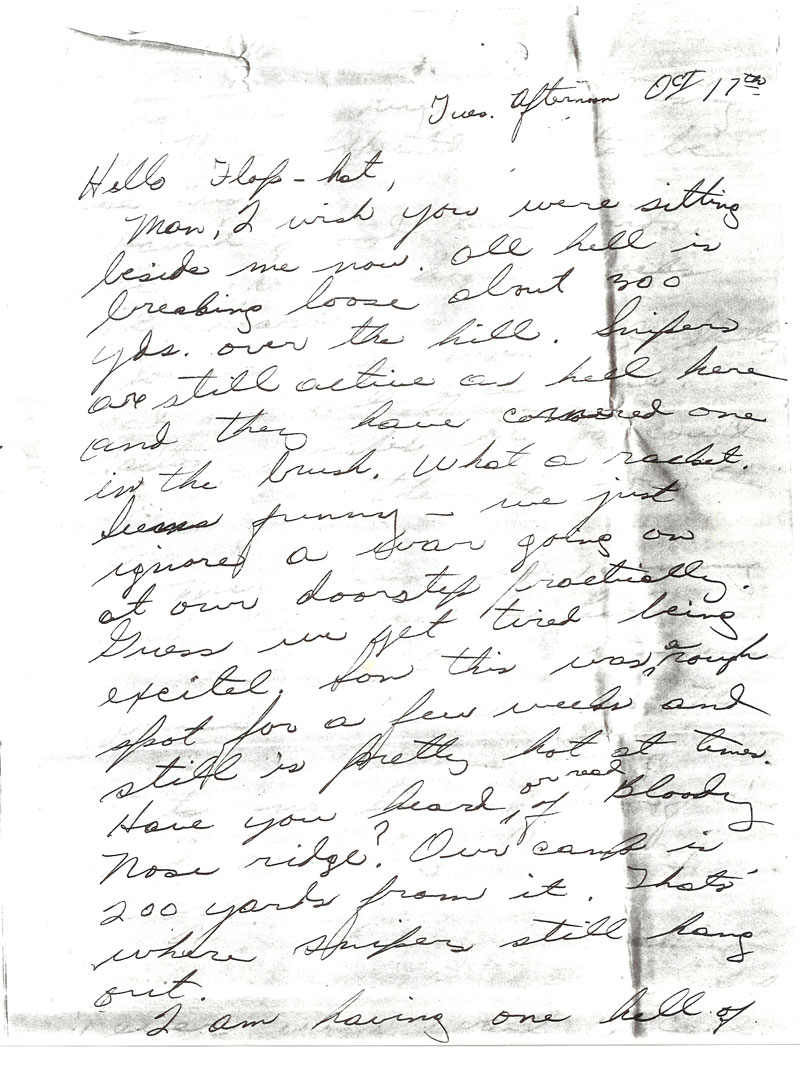 Tues. Afternoon Oct 17th
Hello Flap-hat,
Man, I wish you were sitting
beside me now. All hell is
breaking loose about 300
yds. over the hill. Snipers
are still active as hell here
and they have cornered one
in the brush. What a racket.
Seems funny - we just
ignore a war going on
at our doorstep practically.
Guess we get tired being
excited. Son this was a rough
spot for a few weeks and
still is pretty hot at times.
Have you heard, or read of Bloody
Nose ridge? Our camp is
200 yards from it. Thats'
where snipers still hang
out.
I am having one hell of